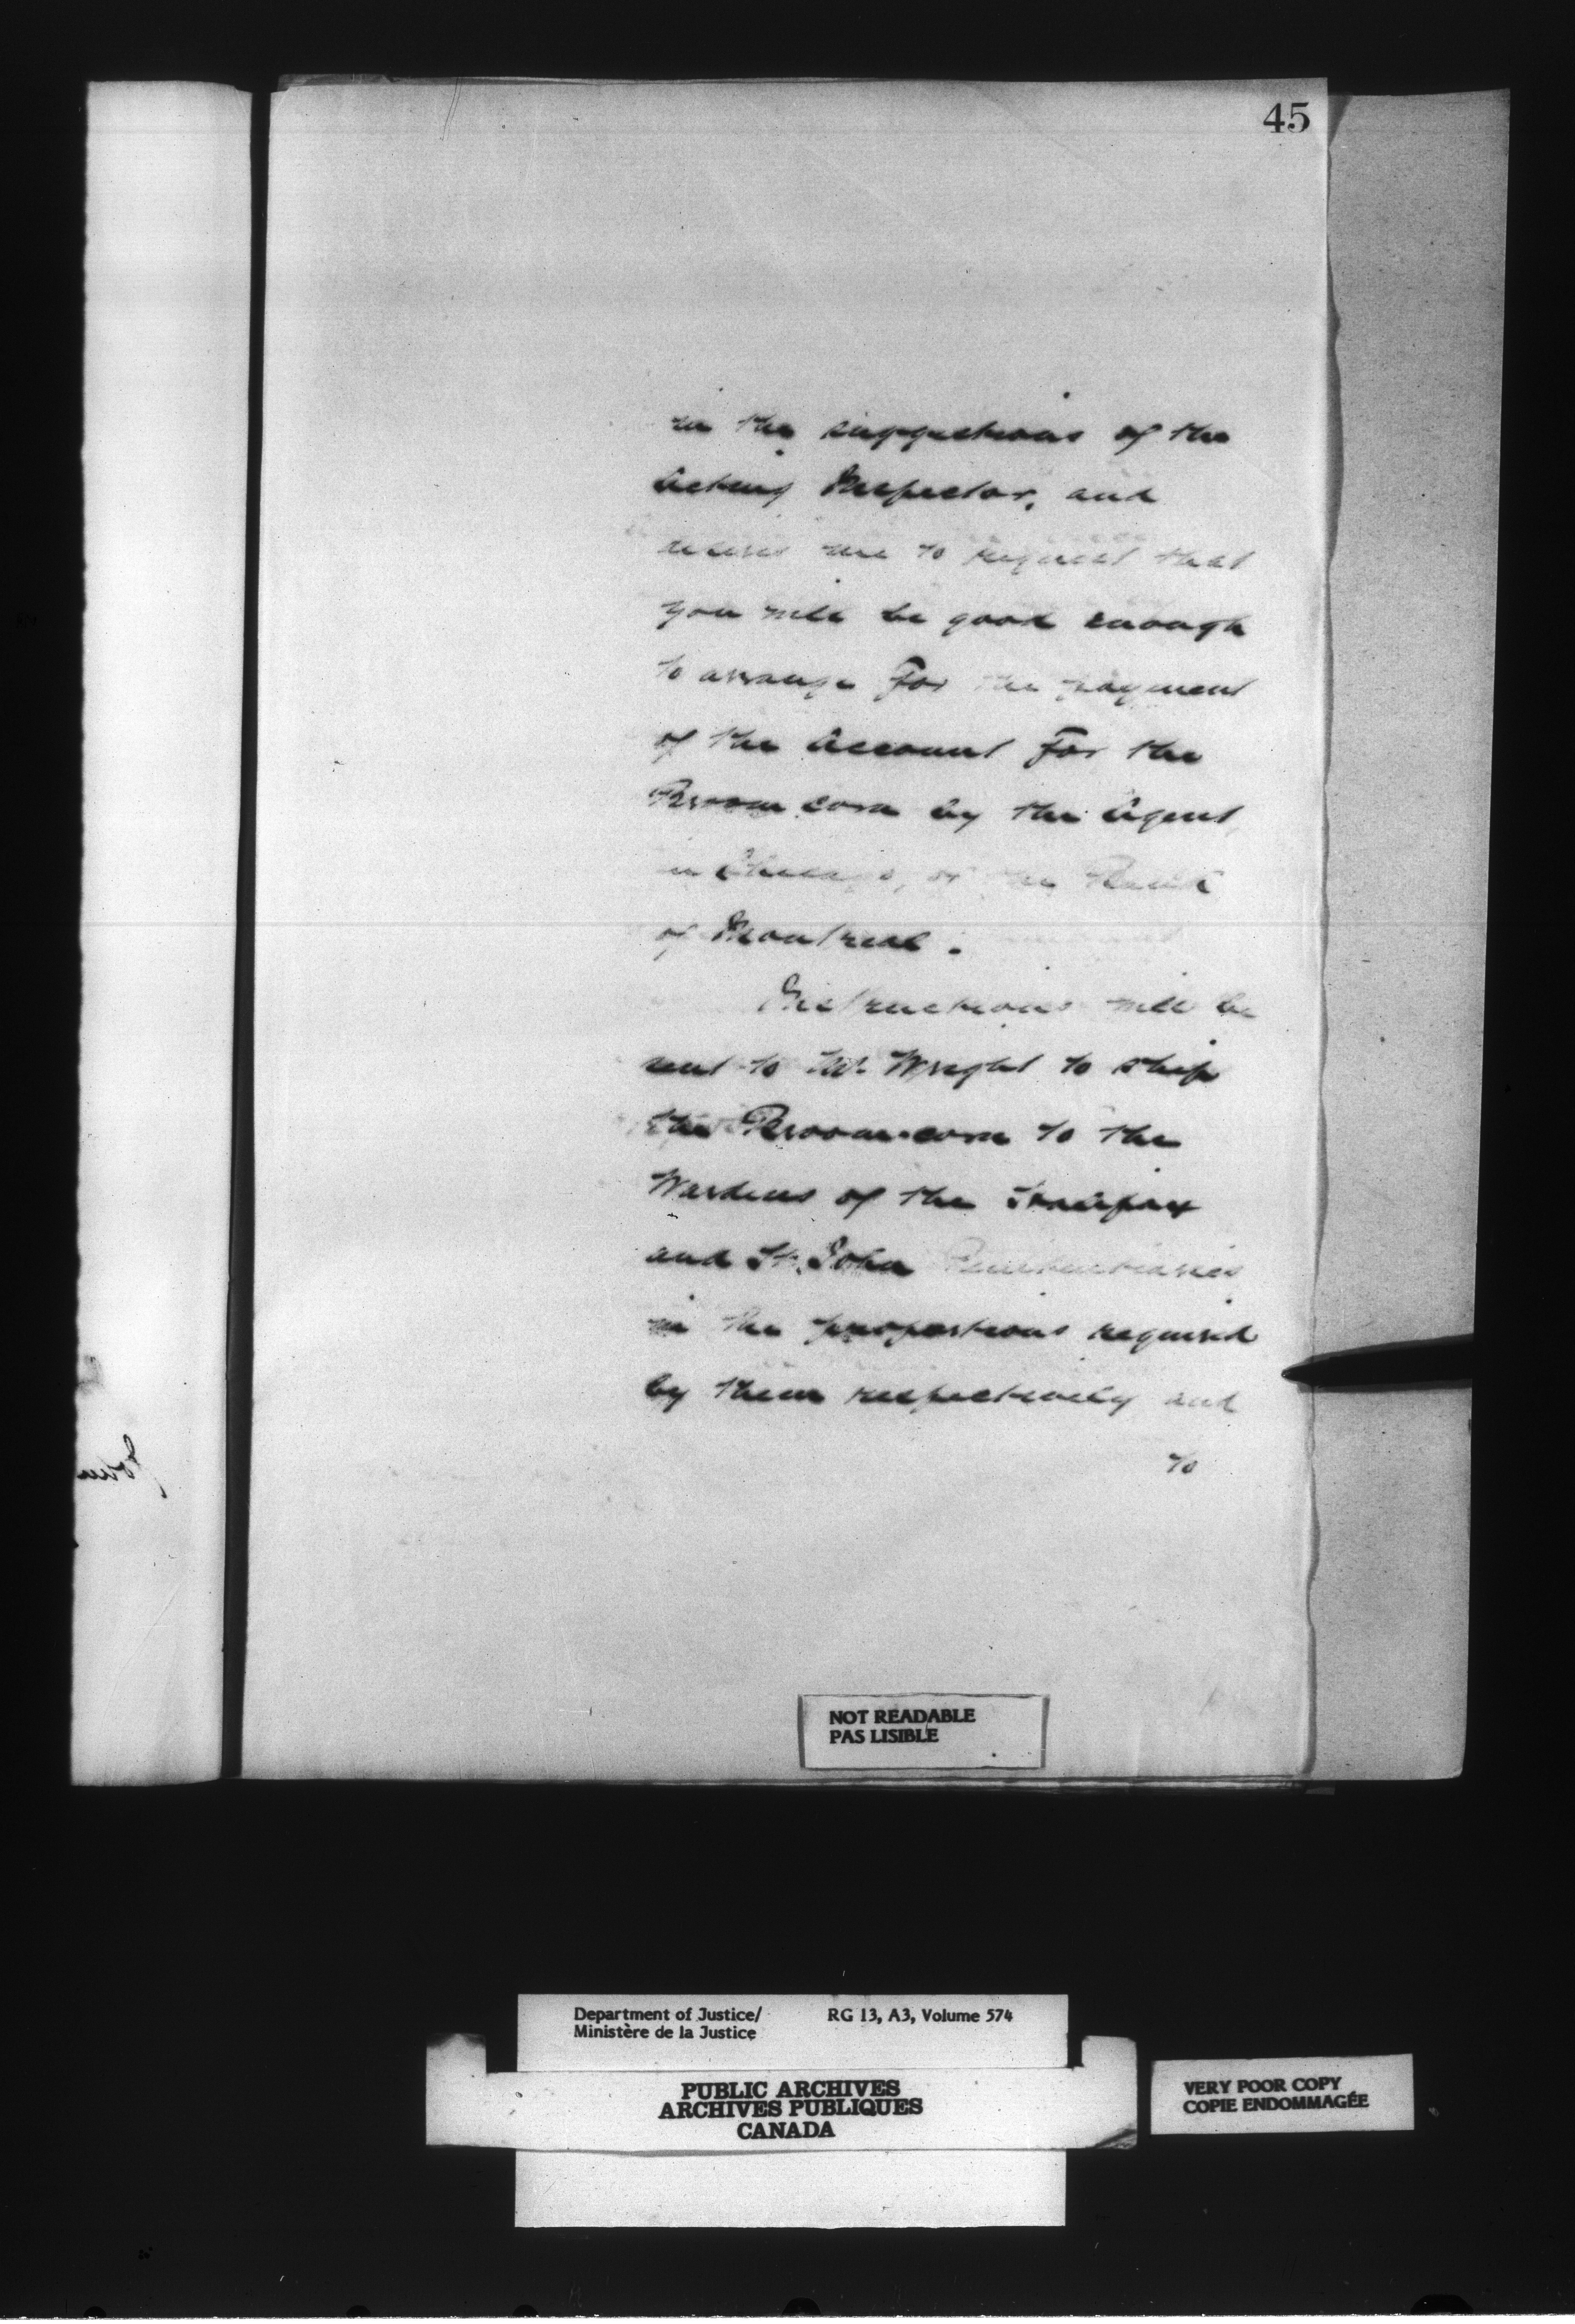 45
in the suggestions of the
Acting Inspector, and
desires me to request that
you will be good enough
to arrange for the payment
of the Account for the
Broom corn by the Agent,
in Chicago, of the Bank
of Montreal.
Instructions will be
sent to Mr. Wright to ship
the Broom-corn to the
Wardens of the Halifax
and St. John Penitentiaries
in the proportions required
by them respectively and
to
NOT READABLE
PAS LISIBLE
Department of Justice/ RG 13, A3, Volume 574
Ministère de la Justice
PUBLIC ARCHIVES
ARCHIVES PUBLIQUES
CANADA
VERY POOR COPY
COPIE ENDOMMAGÉE